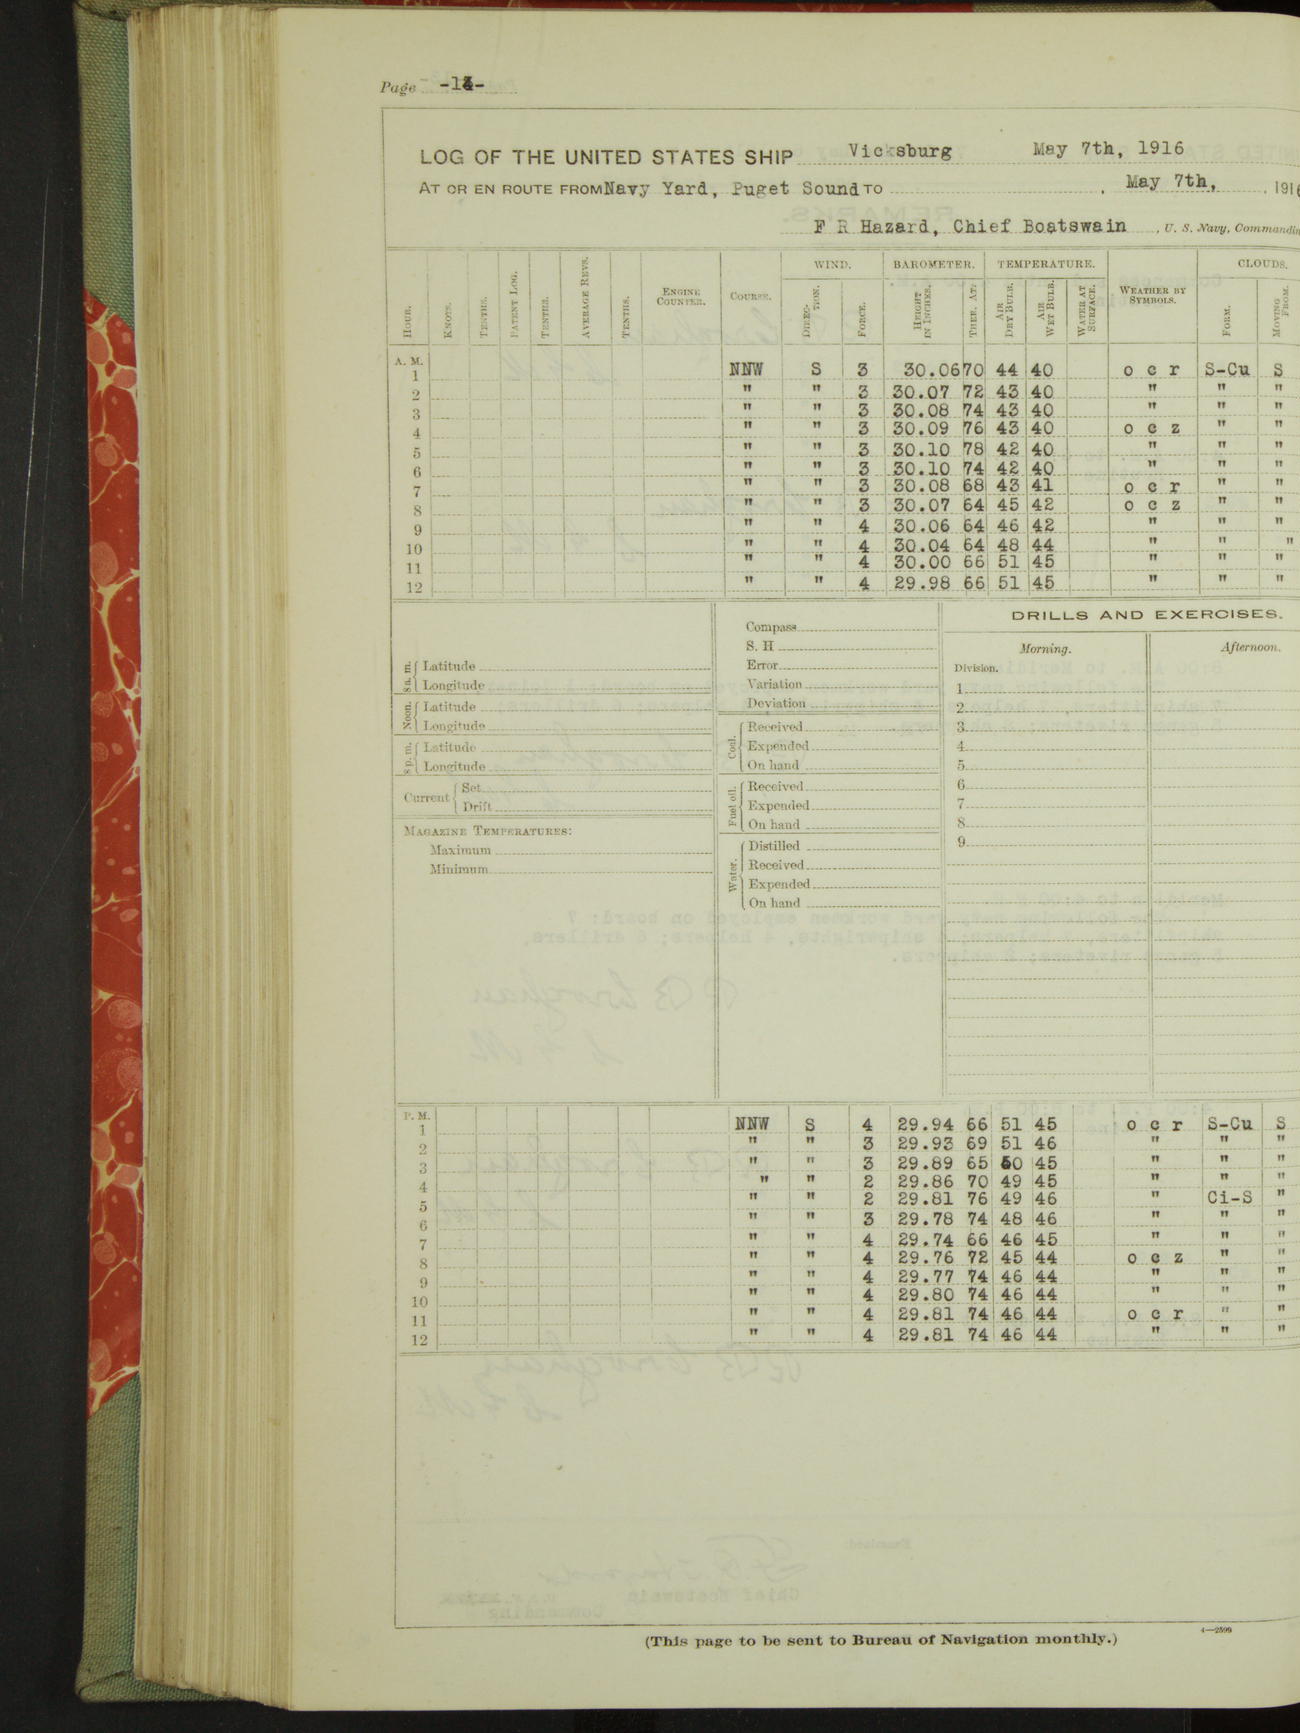 Page -14-
LOG OF THE UNITED STATES SHIP Vicksburg May 7th, 1916
AT OR EN ROUTE FROM Navy Yard, Puget Sound TO , May 7th, , 1916
F R Hazard, Chief Boatswain , U. S. Navy, Commandin
HOUR. KNOTS. TENTHS. PATENT LOG. TENTHS. AVERAGE REVS. TENTHS. ENGINE COUNTER. COURSE. WIND. DIRECTION. FORCE. BAROMETER. HEIGHT IN INCHES. THER. AT. TEMPERATURE. AIR DRY BULB. AIR WET BULB. WATER AT SURFACE. WEATHER BY SYMBOLS. CLOUDS. FORM. MOVING FROM.
A. M.
1 NNW S 3 30.06 70 44 40 o c r S-Cu S
2 " " 3 30.07 72 43 40 " " "
3 " " 3 30.08 74 43 40 " " "
4 " " 3 30.09 76 43 40 o c z " "
5 " " 3 30.10 78 42 40 " " "
6 " " 3 30.10 74 42 40 " " "
7 " " 3 30.08 68 43 41 o c r " "
8 " " 3 30.07 64 45 42 o c z " "
9 " " 4 30.06 64 46 42 " " "
10 " " 4 30.04 64 48 44 " " "
11 " " 4 30.00 66 51 45 " " "
12 " " 4 29.98 66 51 45 " " "
8 a. m. Latitude
Longitude
Noon. Latitude
Longitude
8 p. m. Latitude
Longitude
Current Set
Drift
MAGAZINE TEMPERATURES:
Maximum
Minimum
Compass
S. H
Error
Variation
Deviation
Coal. Received
Expended
On hand
Fuel oil. Received
Expended
On hand
Water. Distilled
Received
Expended
On hand
DRILLS AND EXERCISES.
Morning. Afternoon.
Division.
1
2
3
4
5
6
7
8
9
P. M.
1 NNW S 4 29.94 66 51 45 o c r S-Cu S
2 " " 3 29.93 69 51 46 " " "
3 " " 3 29.89 65 50 45 " " "
4 " " 2 29.86 70 49 45 " " "
5 " " 2 29.81 76 49 46 " Ci-S "
6 " " 3 29.78 74 48 46 " " "
7 " " 4 29.74 66 46 45 " " "
8 " " 4 29.76 72 45 44 o c z " "
9 " " 4 29.77 74 46 44 " " "
10 " " 4 29.80 74 46 44 " " "
11 " " 4 29.81 74 46 44 o c r " "
12 " " 4 29.81 74 46 44 " " "
(This page to be sent to Bureau of Navigation monthly.)
4—2599